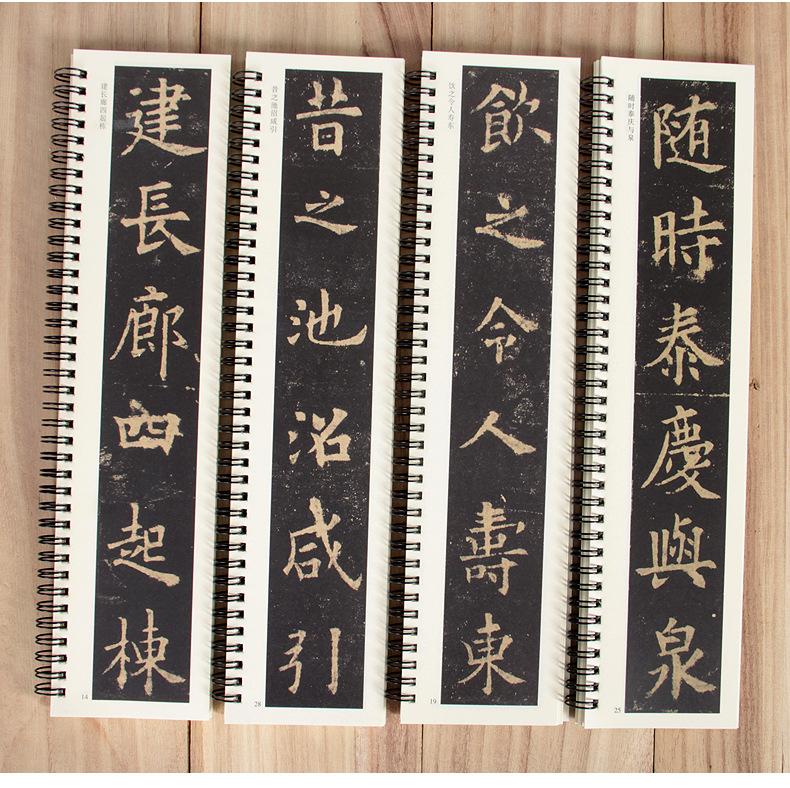 建长廊四起栋
建長廊四起棟
14
昔之池沼咸引
昔之池沼咸引
28
饮之令人寿东
飲之令人壽東
19
随时泰庆与泉
随時泰慶與泉
25